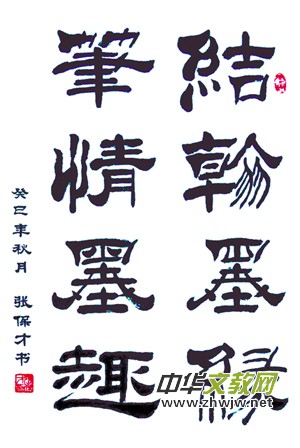 結翰墨緣
筆情墨趣
癸巳年秋月 张保才书
中华文教网
www.zhwjw.net